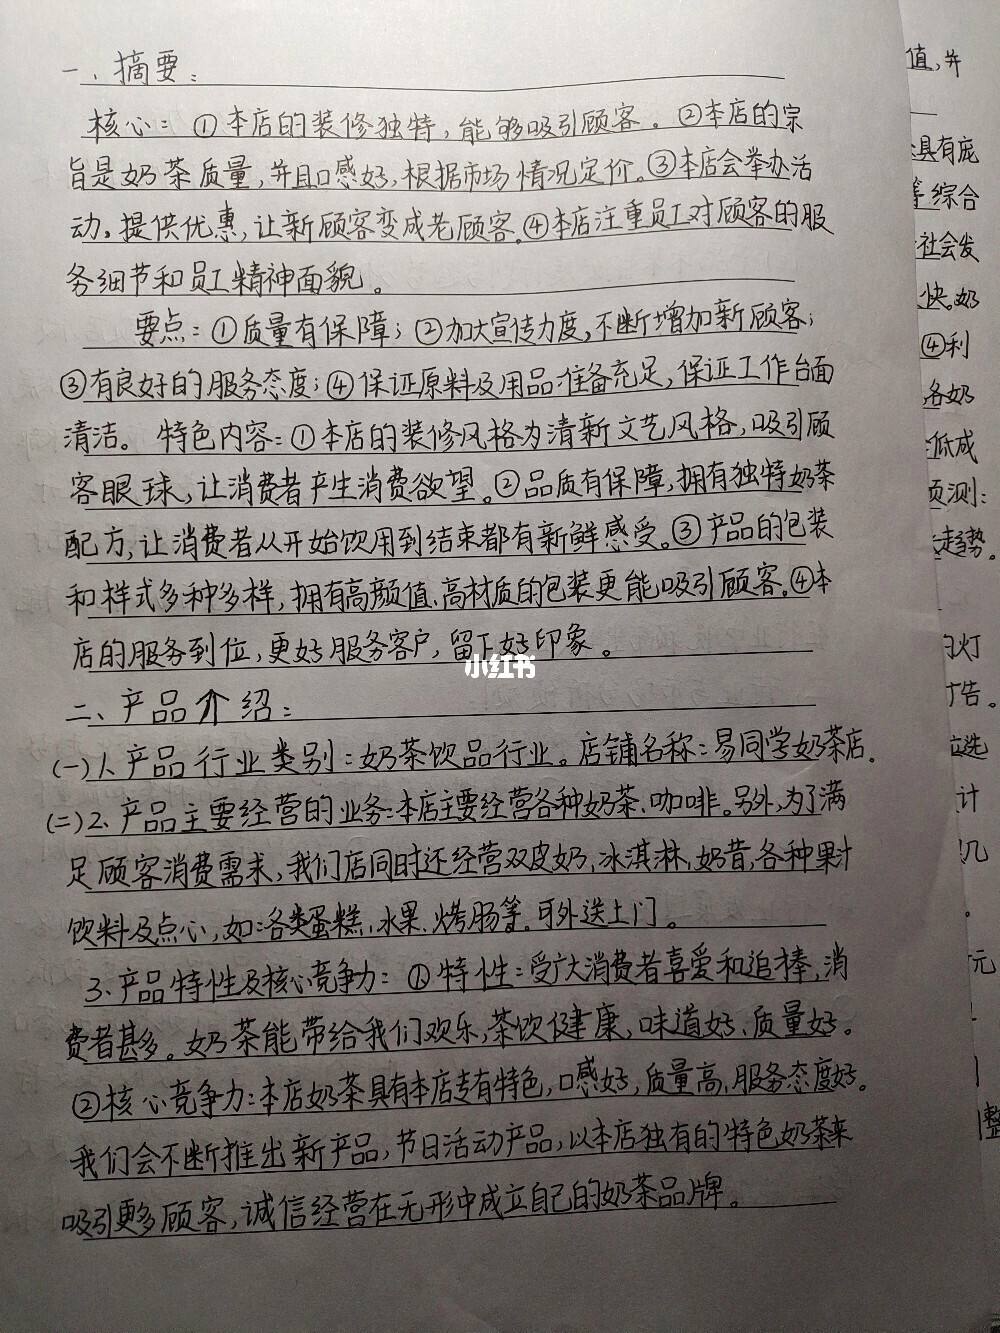 一、摘要：
核心：①本店的装修独特，能够吸引顾客。②本店的宗
旨是奶茶质量，并且口感好，根据市场情况定价。③本店会举办活
动，提供优惠，让新顾客变成老顾客。④本店注重员工对顾客的服
务细节和员工精神面貌。
要点：①质量有保障；②加大宣传力度，不断增加新顾客；
③有良好的服务态度；④保证原料及用品准备充足，保证工作台面
清洁。特色内容：①本店的装修风格为清新文艺风格，吸引顾
客眼球，让消费者产生消费欲望。②品质有保障，拥有独特奶茶
配方，让消费者从开始饮用到结束都有新鲜感受。③产品的包装
和样式多种多样，拥有高颜值、高材质的包装更能吸引顾客。④本
店的服务到位，更好服务客户，留下好印象。
小红书
二、产品介绍：
(一)1、产品行业类别：奶茶饮品行业。店铺名称：易同学奶茶店.
(二)2、产品主要经营的业务：本店主要经营各种奶茶、咖啡。另外，为了满
足顾客消费需求，我们店同时还经营双皮奶，冰淇淋，奶昔，各种果汁
饮料及点心，如：各类蛋糕、水果、烤肠等。可外送上门。
3、产品特性及核心竞争力：①特性：受广大消费者喜爱和追捧，消
费者甚多。奶茶能带给我们欢乐，茶饮健康，味道好、质量好。
②核心竞争力：本店奶茶具有本店专有特色，口感好，质量高，服务态度好。
我们会不断推出新产品，节日活动产品，以本店独有的特色奶茶来
吸引更多顾客，诚信经营在无形中成立自己的奶茶品牌。
值，并
具有庞
等综合
社会发
快。奶
④利
各奶
低成
预测：
趋势。
灯
广告。
选
计
几
元
整